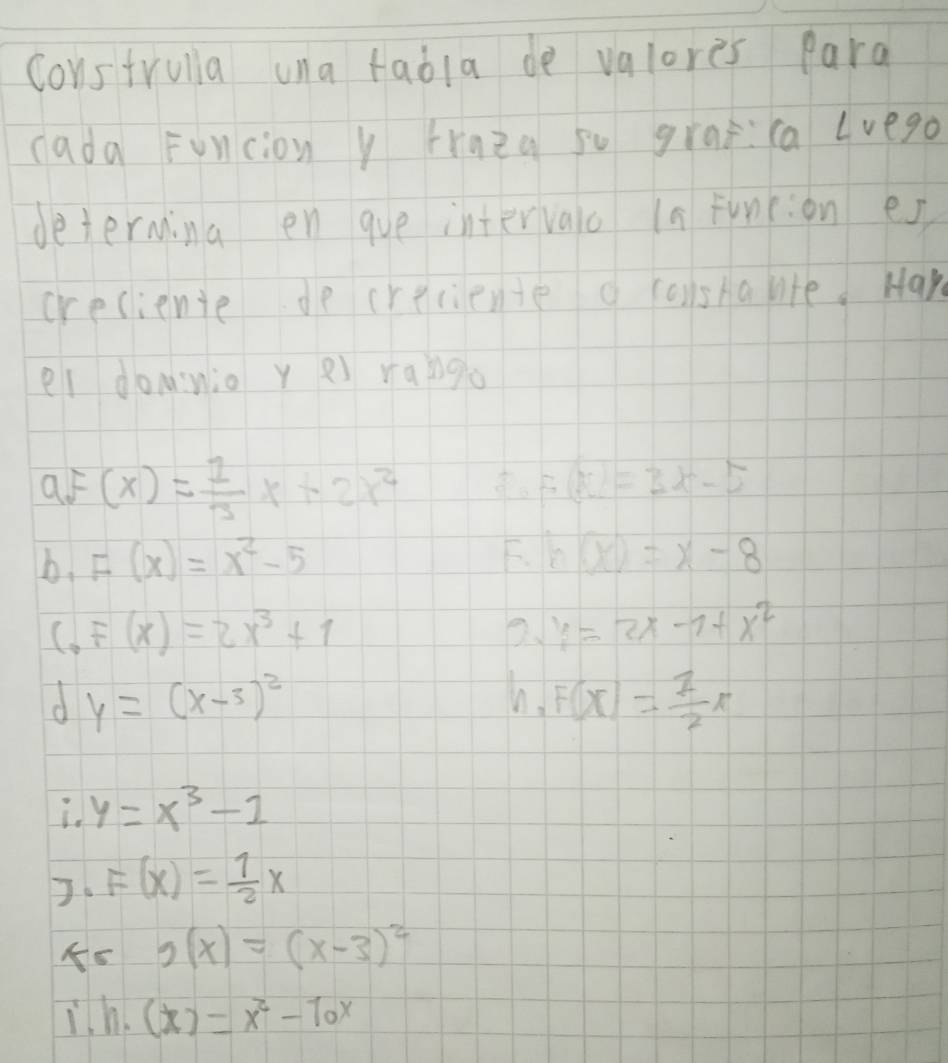 Construlla una tabla de valores para
cada Funcion y traza su grafica Luego
determina en que intervalo la Funcion es
creciente decreciente o constante. Hay
el dominio y el rango
a. F(x) = 1/3 x + 2x²
b. F(x) = x² - 5
c. F(x) = 2x³ + 1
d y = (x-3)²
F(x) = 3x - 5
F. h(x) = x - 8
g. y = 2x - 1 + x²
h. F(x) = 1/2 x
i. y = x³ - 1
J. F(x) = 1/2 x
g(x) = (x-3)²
h. (x) = x² - 10x